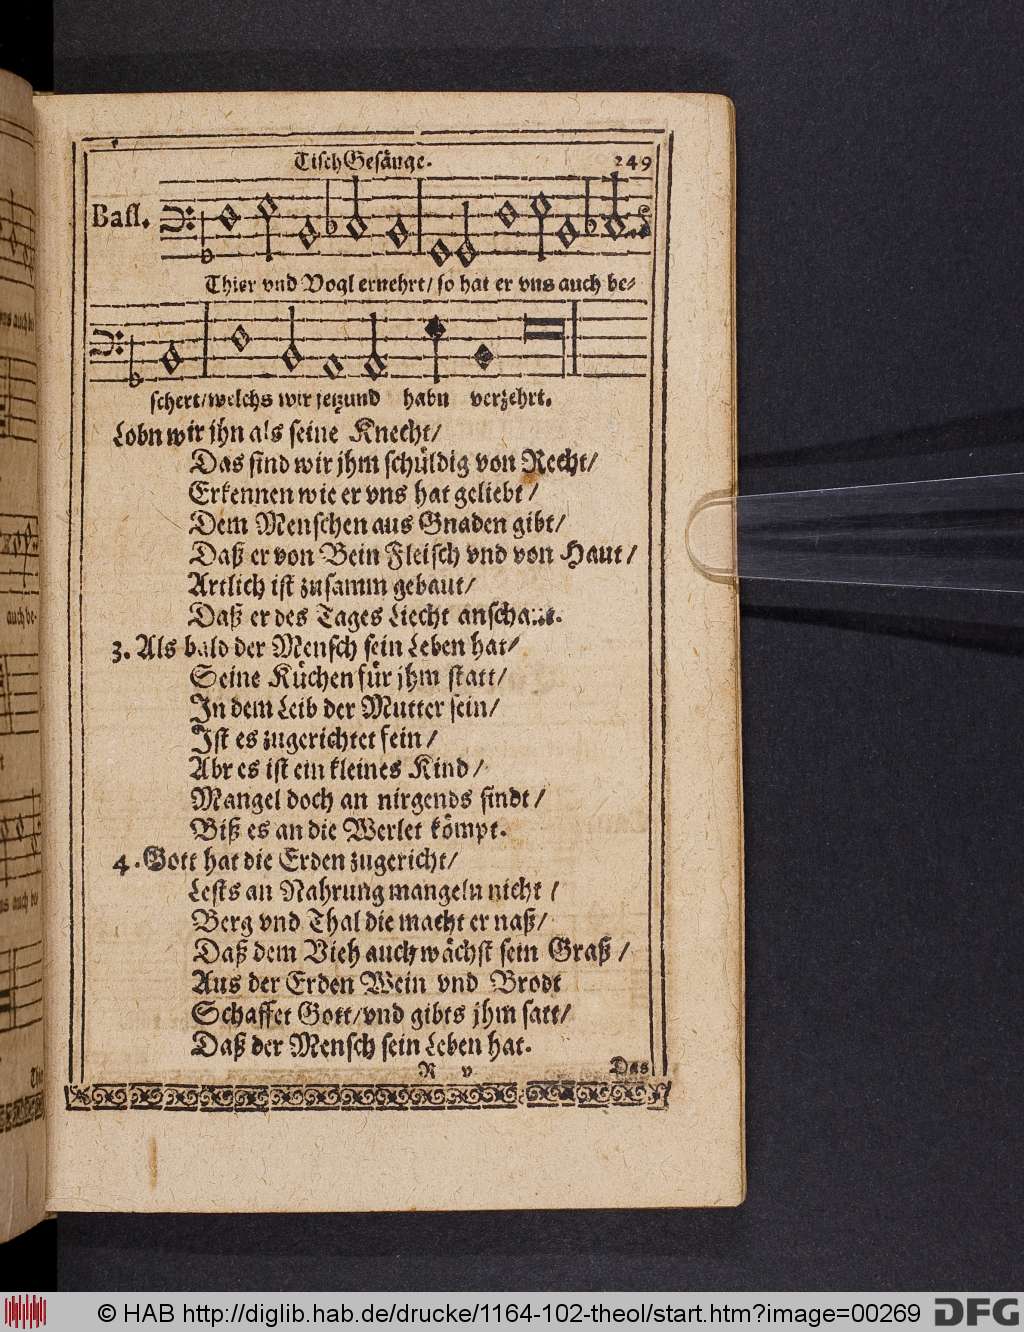 TischGesänge. 249
Bass.
Thier vnd Vogl ernehrt/ so hat er vns auch be-
schert/welchs wir jetzund habn verzehrt.
Lobn wir jhn als seine Knecht/
Das sind wir jhm schüldig von Recht/
Erkennen wie er vns hat geliebt/
Dem Menschen aus Gnaden gibt/
Daß er von Bein Fleisch vnd von Haut/
Artlich ist zusamm gebaut/
Daß er des Tages Liecht anschaut.
3. Als bald der Mensch sein Leben hat/
Seine Küchen für jhm statt/
In dem Leib der Mutter sein/
Ist es zugerichtet fein/
Abr es ist ein kleines Kind/
Mangel doch an nirgends findt/
Biß es an die Werlet kömpt.
4. Gott hat die Erden zugericht/
Lests an Nahrung mangeln nicht/
Berg vnd Thal die macht er naß/
Daß dem Vieh auch wächst sein Graß/
Aus der Erden Wein vnd Brodt
Schaffet Gott/vnd gibts jhm satt/
Daß der Mensch sein Leben hat.
R v Das
© HAB http://diglib.hab.de/drucke/1164-102-theol/start.htm?image=00269 DFG